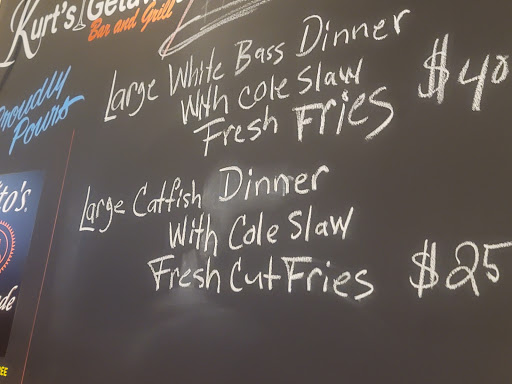 Kurt's Getaway
Bar and Grill
Proudly
Pours
Large White Bass Dinner
With Cole Slaw
Fresh Fries
$40
Large Catfish Dinner
With Cole Slaw
Fresh Cut Fries $25